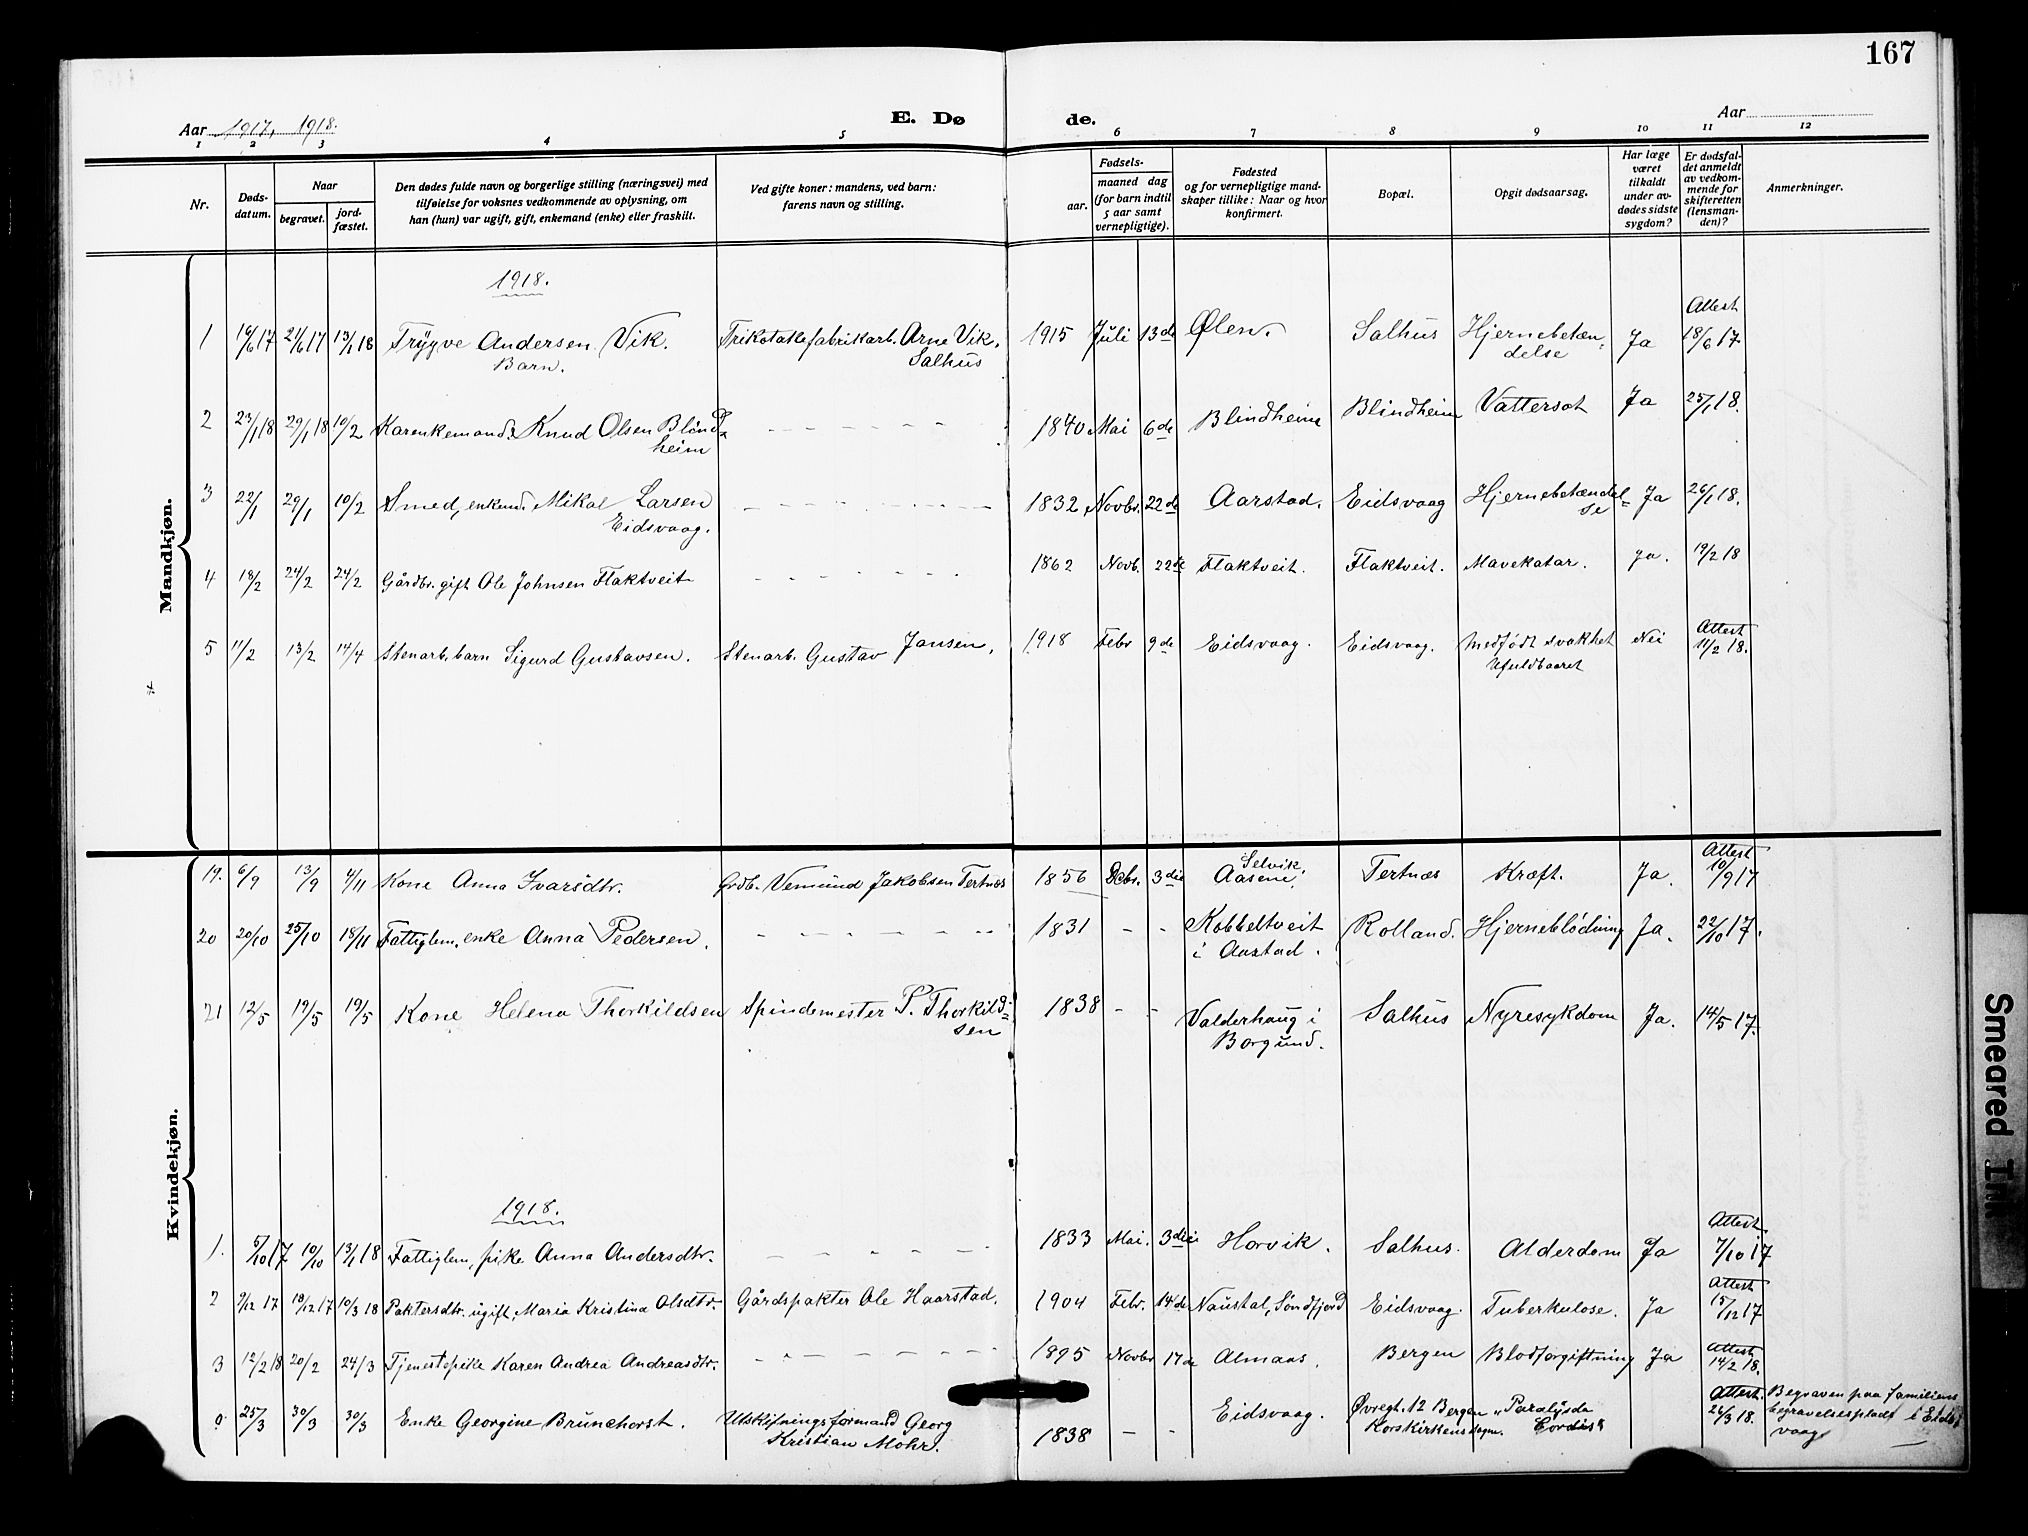 167
Aar 1917, 1918.
E. Dø
de.
Aar
1 2 3 4 5 6 7 8 9 10 11 12
Nr.
Døds-
datum.
Naar
begravet.
jord-
fæstet.
Den dødes fulde navn og borgerlige stilling (næringsvei) med
tilføielse for voksnes vedkommende av oplysning, om
han (hun) var ugift, gift, enkemand (enke) eller fraskilt.
Ved gifte koner: mandens, ved barn:
farens navn og stilling.
Fødsels-
aar.
maaned dag
(for barn indtil
5 aar samt
vernepligtige).
Fødested
og for vernepligtige mand-
skaper tillike: Naar og hvor
konfirmert.
Bopæl.
Opgit dødsaarsag.
Har læge
været
tilkaldt
under av-
dødes sidste
sygdom?
Er dødsfal-
det anmeldt
av vedkom-
mende for
skifteretten
(lensman-
den)?
Anmerkninger.
Mandkjøn.
1918.
Attest
1 16/6 17 21/6 17 13/1 18 Trygve Andersen Vik. Trikotakefabrikarb. Arne Vik, 1915 Juli 13de Ølen. Salhus Hjernebetæn- Ja 18/6 17
Barn. Salhus delse
2 23/1 18 29/1 18 10/2 Karenkemand Knud Olsen Blind- 1840 Mai 6de Blindheim Blindheim Vattersot Ja 25/1 18.
heim
3 22/1 29/1 10/2 Smed, enkem. Mikal Larsen 1832 Novbr. 22de Aarstad. Eidsvaag Hjernebetændel- Ja 26/1 18.
Eidsvaag. se
4 18/2 24/2 24/2 Gårdbr. gift Ole Johnsen Flaktveit 1862 Novb. 22de Flaktveit. Flaktveit. Mavekatar. Ja. 19/2 18
Attest
5 11/2 13/2 14/4 Stenarb. barn Sigurd Gustavsen. Stenarb. Gustav Jansen, 1918 Febr 9de Eidsvaag. Eidsvaag. Medfødt svakhet Nei 11/2 18.
Ufuldbaaret
Kvindekjøn.
Selvik Attest
19. 6/9 13/9 4/11 Kone Anna Ivarsdtr. Grdb. Vemund Jakobsen Tertnes 1856 Dcbr. 3die Aasene. Tertnæs Kræft. Ja. 10/9 17
20 20/10 25/10 18/11 Fattiglem, enke Anna Pedersen. 1831 - - Kobbeltveit Rolland. Hjerneblødning Ja. 22/10 17.
i Aastad.
21 12/5 19/5 19/5 Kone Helena Thorkildsen Spindemester P. Thorkild- 1838 - - Valderhaug i Salhus Nyresykdom Ja. 14/5 17.
sen Borgund.
1918.
Attest
1. 5/10 17 10/10 13/1 18 Fattiglem, pike Anna Andersdtr. 1833 Mai. 3die Horvik. Salhus. Alderdom Ja 7/10 17
Attest
2 9/12 17 18/12 17 10/3 18 Paktersdtr. ugift, Maria Kristina Olsdtr. Gårdspakter Ole Haarstad. 1904 Febr. 14de Naustal, Søndfjord Eidsvaag. Tuberkulose. Ja 15/12 17
Attest
3 12/2 18 20/2 24/3 Tjenestepike Karen Andrea Andreasdtr. 1895 Novbr 17de Almaas. Bergen Blodforgiftning Ja 14/2 18.
Attest. Begraven paa familiens
25/3 30/3 30/3 Enke Georgine Brunchorst. Utskifningsformand Georg 1838 - - Eidsvaag. Øvregt. 12 Bergen "Paralysda 26/3 18. begravelsesplads i Eids-
Kristian Mohr. Korskirkens sogn. Cordis" vaag
Smeared Ink